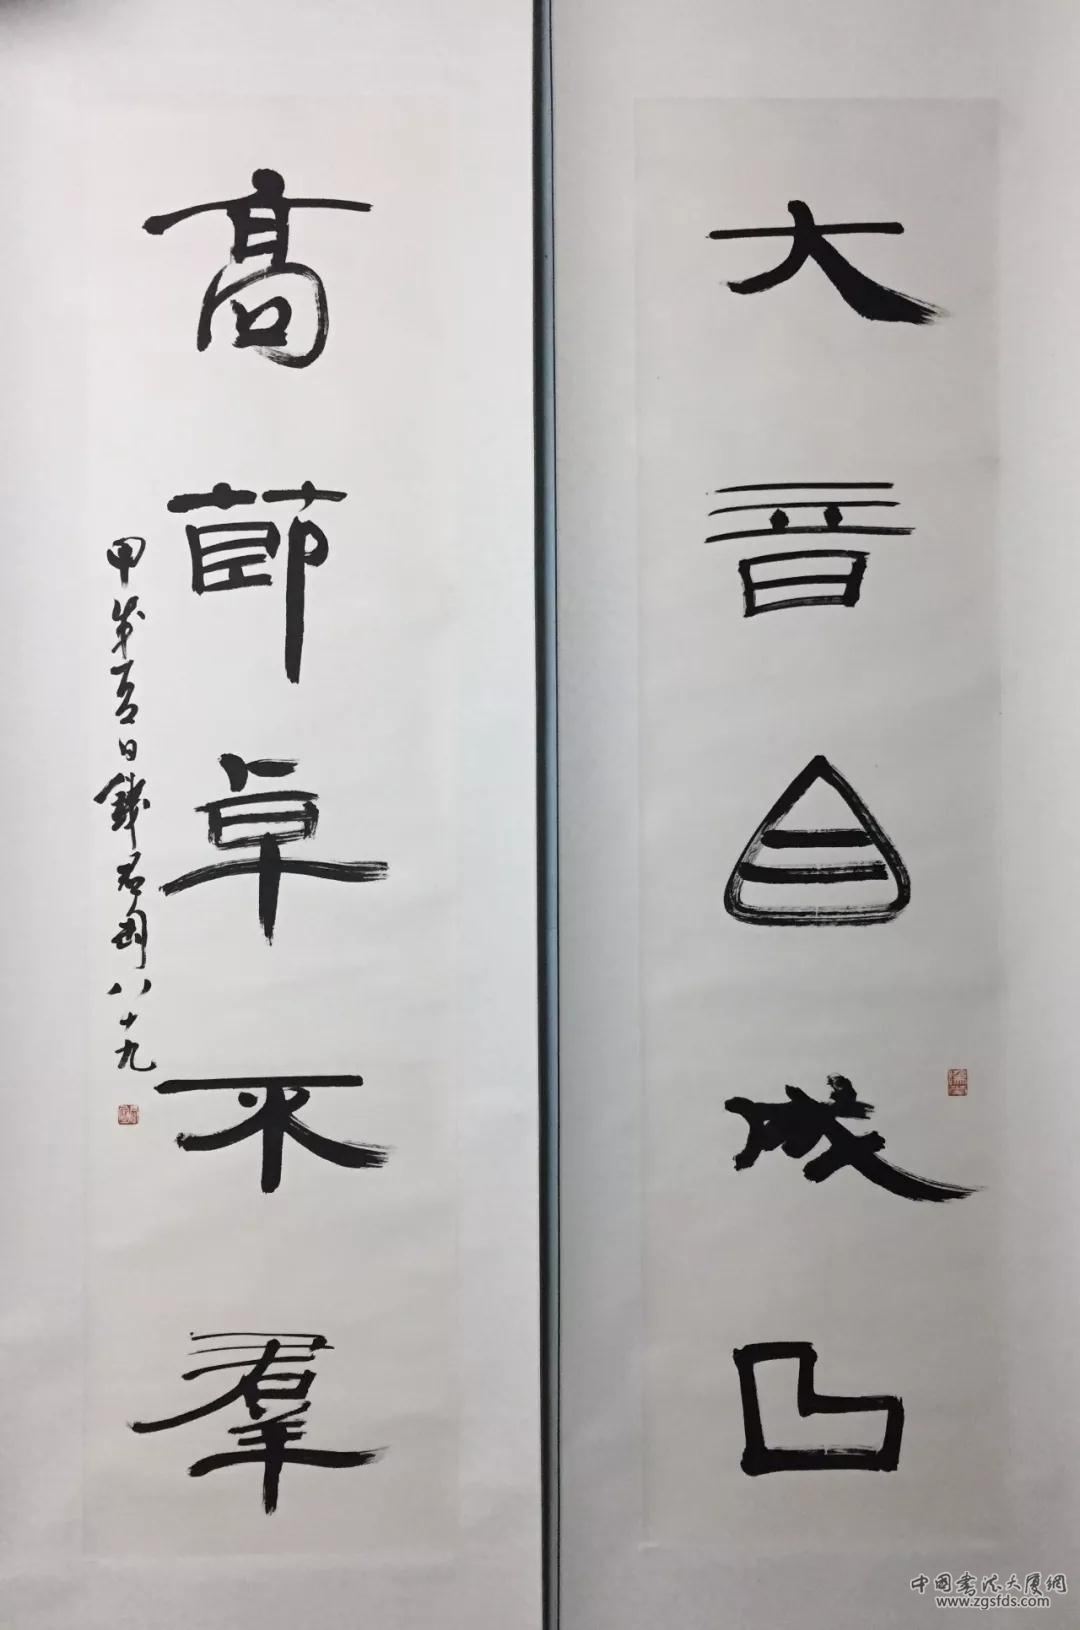 大音自成曲
高節卓不羣
甲戌夏日錢君匋八十九
中國書法大廈網
www.zgsfds.com